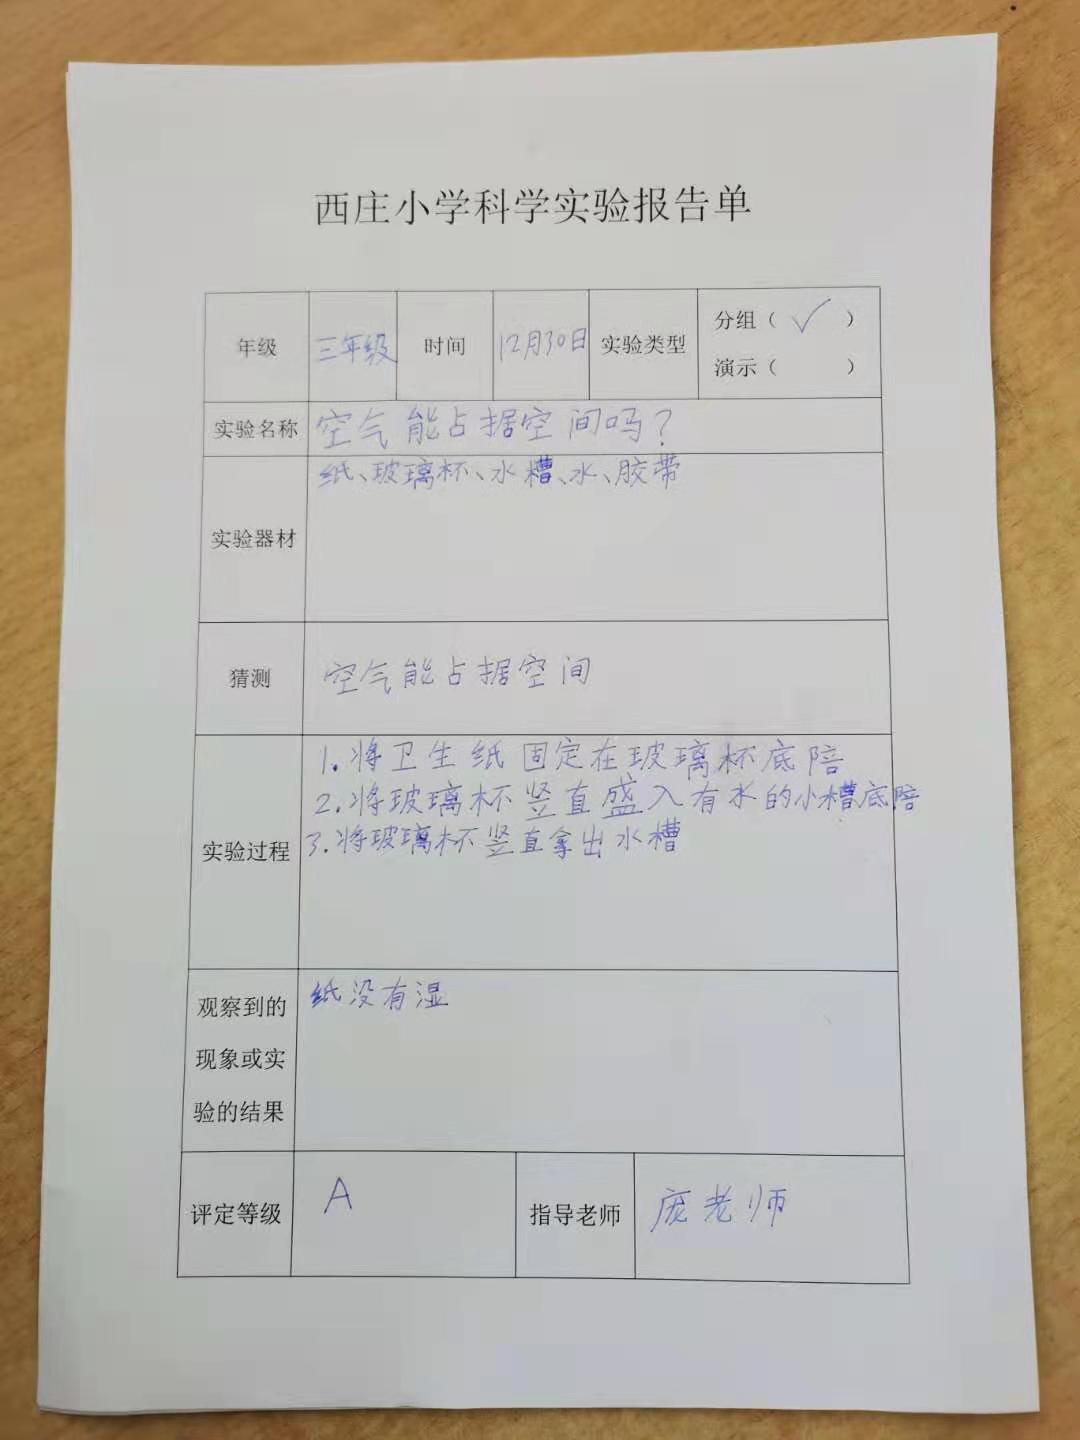 西庄小学科学实验报告单
年级 三年级 时间 12月30日 实验类型 分组（ ✓ ）
演示（ ）
实验名称 空气能占据空间吗？
实验器材 纸、玻璃杯、水槽、水、胶带
猜测 空气能占据空间
实验过程 1.将卫生纸固定在玻璃杯底陪
2.将玻璃杯竖直盛入有水的小槽底陪
3.将玻璃杯竖直拿出水槽
观察到的 纸没有湿
现象或实
验的结果
评定等级 A 指导老师 庞老师